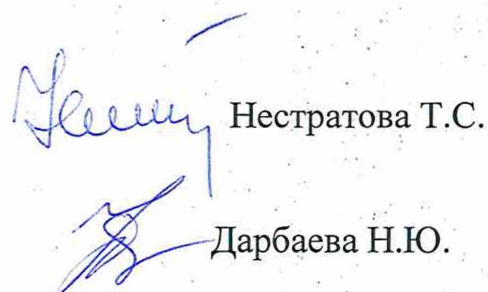 Нестратова Т.С.
Дарбаева Н.Ю.